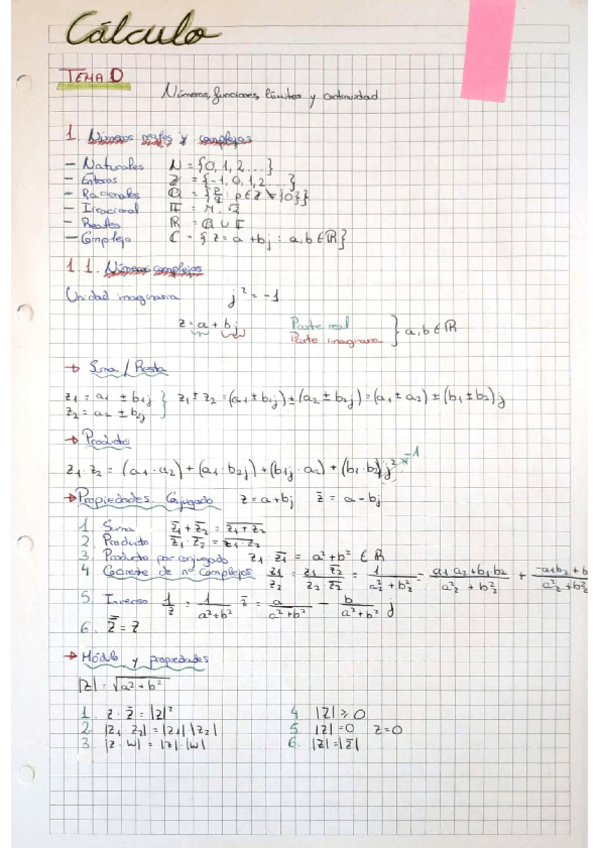 Cálculo
TEMA 0
Números, funciones, límites y continuidad
1. Números reales y complejos
- Naturales N = {0, 1, 2 ...}
- Enteros Z = {-1, 0, 1, 2 ...}
- Racionales Q = {p/q : p ∈ Z \ {0}}
- Irracional
- Reales R = Q ∪ I
- Complejo C = {z = a + bj : a, b ∈ R}
1.1. Números complejos
Unidad imaginaria j² = -1
z = a + bj Parte real
Parte imaginaria } a, b ∈ R
→ Suma / Resta
z₁ = a₁ ± b₁j
z₂ = a₂ ± b₂j } z₁ ± z₂ = (a₁ ± b₁j) ± (a₂ ± b₂j) = (a₁ ± a₂) ± (b₁ ± b₂)j
→ Producto
z₁ · z₂ = (a₁ · a₂) + (a₁ · b₂j) + (b₁j · a₂) + (b₁ · b₂)j² -1
→ Propiedades Conjugado z = a + bj z̄ = a - bj
1. Suma z̄₁ + z̄₂ = z̅₁̅ ̅+̅ ̅z̅₂
2. Producto z̄₁ · z̄₂ = z̅₁̅ ̅·̅ ̅z̅₂
3. Producto por conjugado z₁ · z̄₁ = a² + b² ∈ R
4 Cociente de nº Complejos z₁/z₂ = z₁/z₂ · z̄₂/z̄₂ = 1/(a₂² + b₂²) - (a₁a₂ + b₁b₂)/(a₂² + b₂²) + (-a₁b₂ + b)/(a₂² + b₂²)
5. Inverso 1/z = 1/(a² + b²) z̄ = a/(a² + b²) - b/(a² + b²) j
6. z̿ = z
→ Módulo y propiedades
|z| = √(a² + b²)
1. z · z̄ = |z|²
2. |z₁ z₂| = |z₁| |z₂|
3. |z · w| = |z| · |w|
4 |z| ≥ 0
5. |z| = 0 z = 0
6. |z| = |z̄|